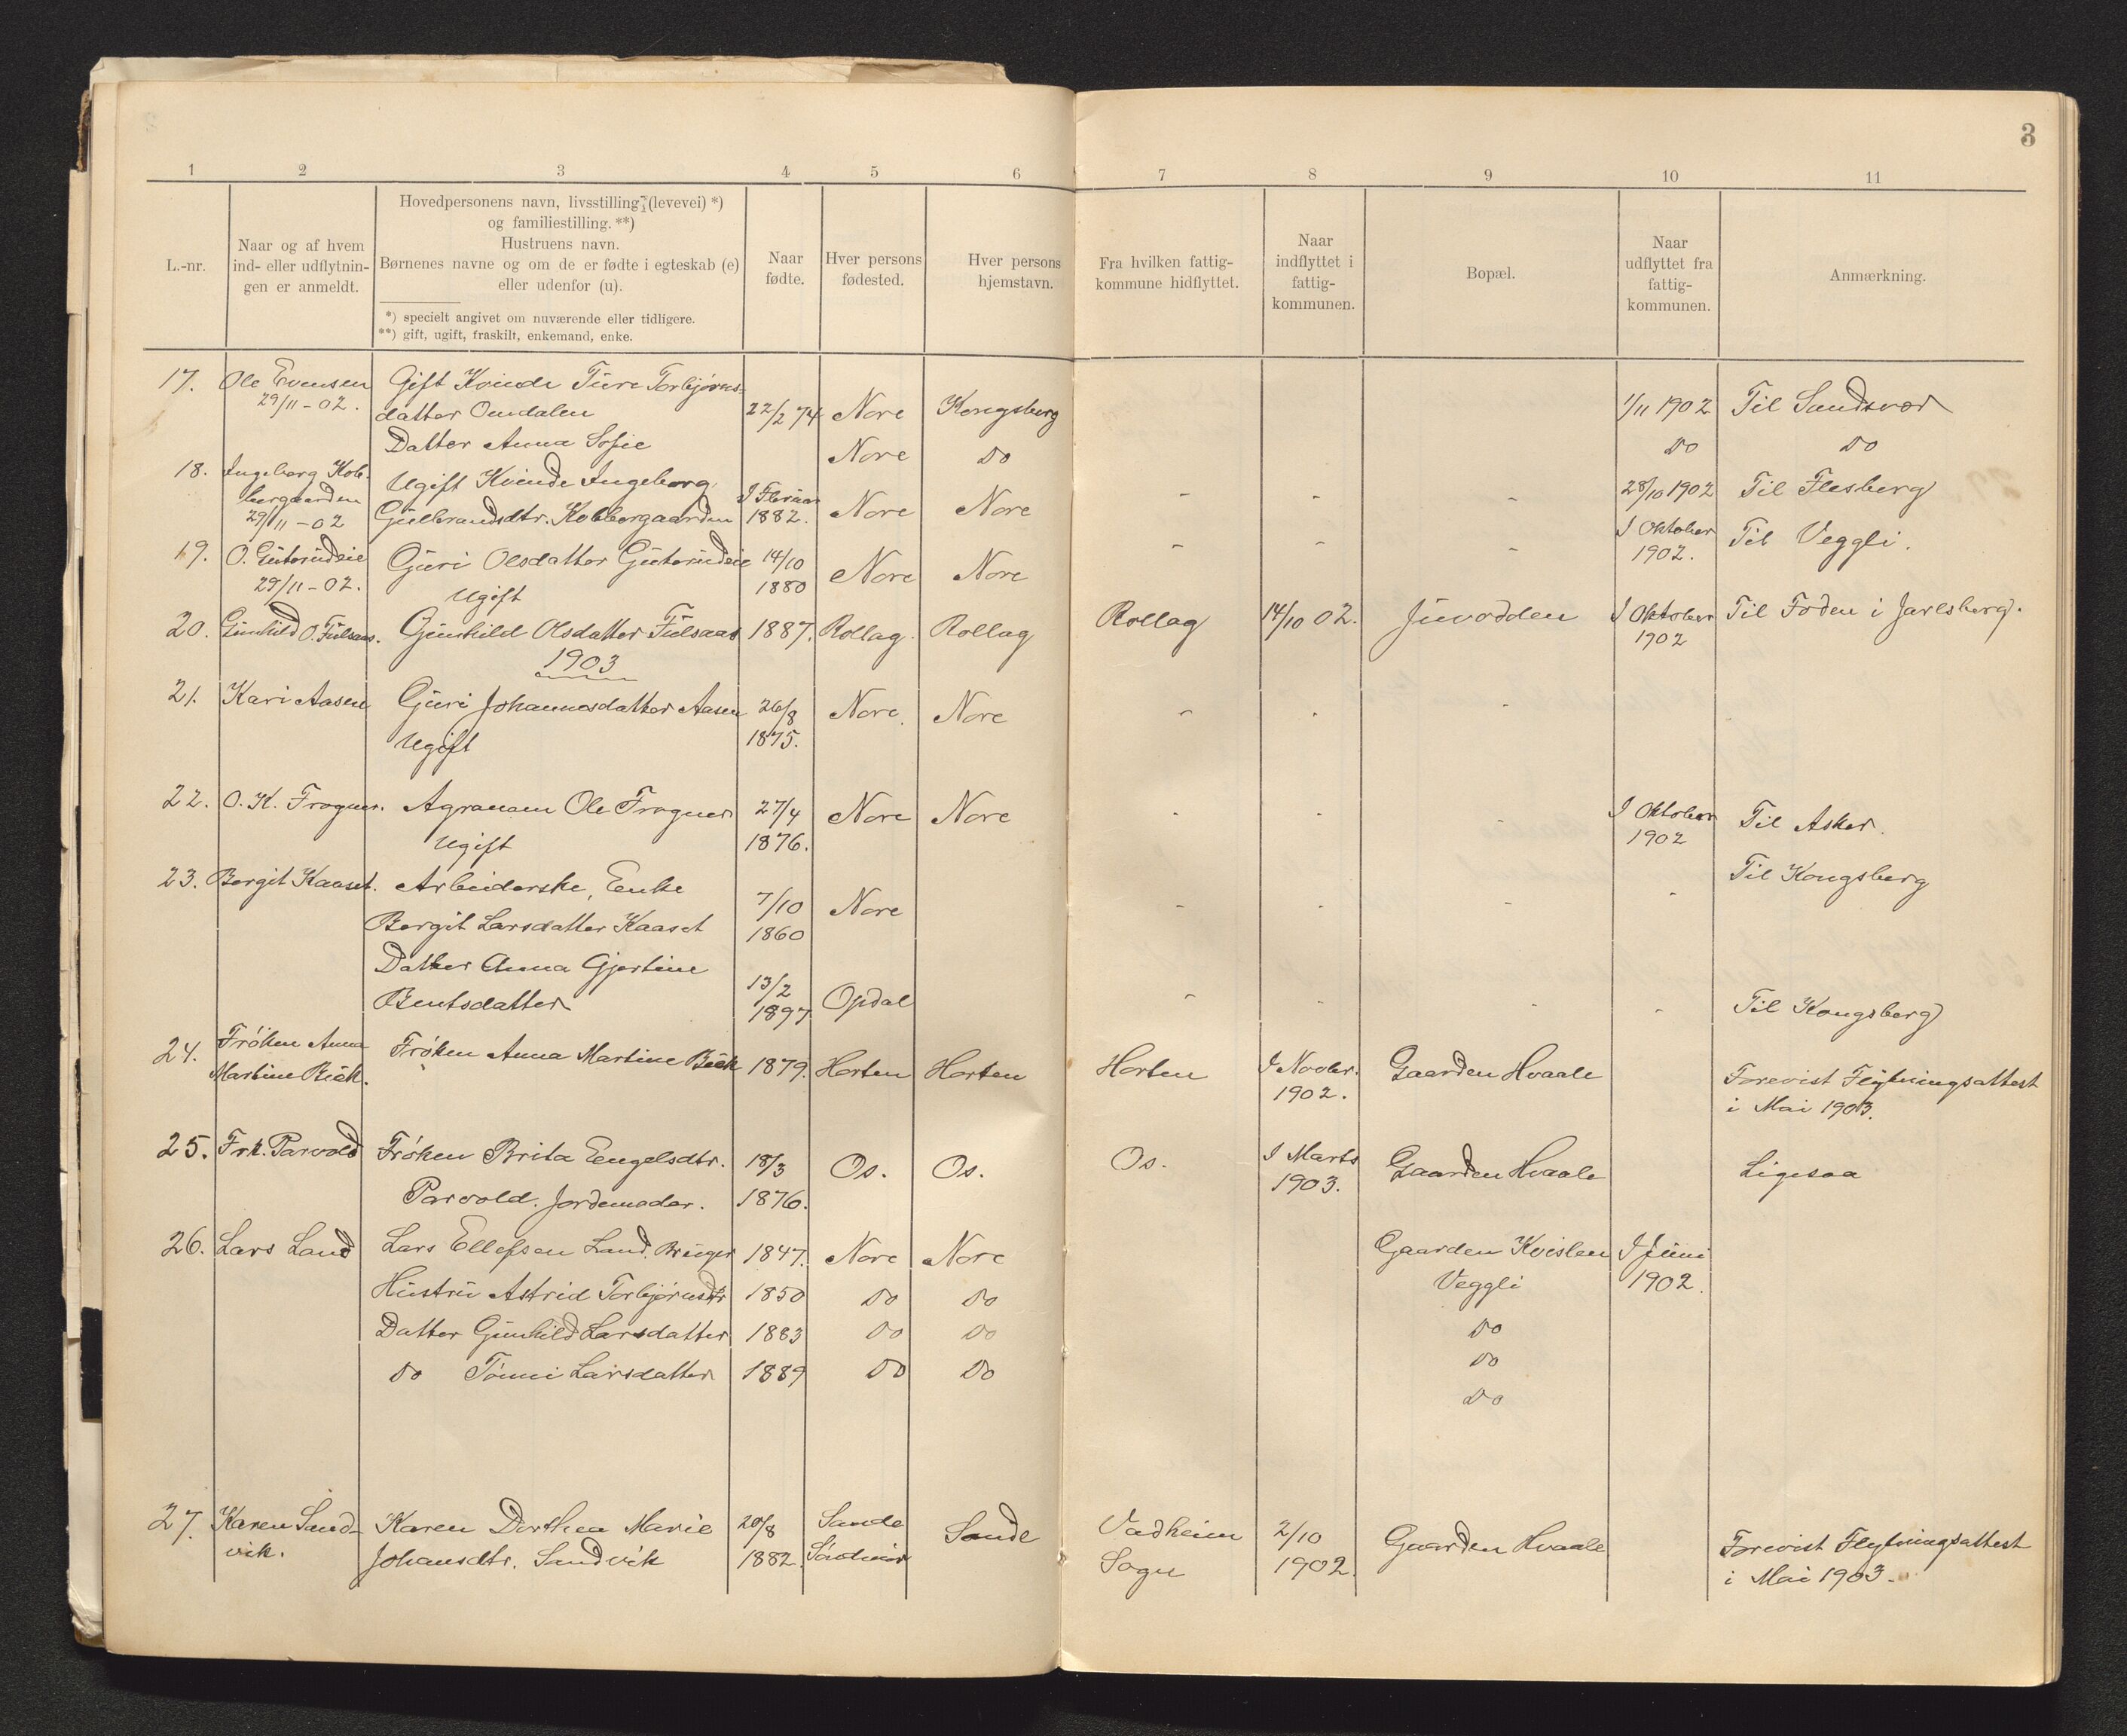 3
1 2 3 4 5 6 7 8 9 10 11
L.-nr.
Naar og af hvem
ind- eller udflytnin-
gen er anmeldt.
Hovedpersonens navn, livsstilling (levevei) *)
og familiestilling. **)
Hustruens navn.
Børnenes navne og om de er fødte i egteskab (e)
eller udenfor (u).
*) specielt angivet om nuværende eller tidligere.
**) gift, ugift, fraskilt, enkemand, enke.
Naar
fødte.
Hver persons
fødested.
Hver persons
hjemstavn.
Fra hvilken fattig-
kommune hidflyttet.
Naar
indflyttet i
fattig-
kommunen.
Bopæl.
Naar
udflyttet fra
fattig-
kommunen.
Anmærkning.
17. Ole Evensen Gift Kvinde Ture Torbjørns-
29/11-02. datter Omdalen 22/2 74 Nore Kongsberg 1/11 1902 Til Sandsvær
Datter Anna Sofie Nore Do Do Do
18. Ingeborg Kob- Ugift Kvinde Ingeborg I Februar - - - 28/10 1902 Til Flesberg
bergaarden Gulbrandsdtr. Kobbergaarden 1882. Nore Nore
29/11-02
19. O. Guterudeie Guri Olsdatter Guterudeie 14/10 Nore Nore - - - I Oktober Til Veggli.
29/11-02. Ugift 1880 1902.
20. Gunhild O. Fulsaas. Gunhild Olsdatter Fulsaas 1887. Rollag. Rollag Rollag 14/10 02. Juvodden I Oktober Til Foden i Jarlsberg.
1902
1903
21. Kari Aasen Guri Johannesdatter Aasen 26/8 Nore. Nore - - -
Ugift 1875.
22. O. K. Frogner. Agronom Ole Frogner 27/4 Nore Nore - - - I Oktober Til Asker.
Ugift 1876. 1902
23. Bergit Kaaset. Arbeiderske, Enke 7/10 Nore - - - - Til Kongsberg
Bergit Larsdatter Kaaset 1860
Datter Anna Gjertine 13/2
Bentsdatter 1897 Opdal - - - - Til Kongsberg
24. Frøken Anna Frøken Anna Martine Bäck 1879. Horten Horten Horten I Novbr. Gaarden Hvaale Forevist Flytningsattest
Martine Bäck. 1902. i Mai 1903.
25. Frk. Parvold Frøken Brita Eengelsdtr. 18/3 Os. Os. Os. I Marts Gaarden Hvaale Ligesaa
Parvold. Jordemoder. 1876. 1903.
26. Lars Land Lars Ellefsen Land. Bruger 1847. Nore Nore Gaarden Kvislen I Juni
Hustru Astrid Torbjørnsdtr 1850 Do Do Veggli 1902.
Datter Gunhild Larsdatter 1883 Do Do Do
Do Tønni Larsdatter 1889 Do Do Do
Do
27. Karen Sand- Karen Dorthea Marie 20/8 Sande Sande Vadheim 2/10 Gaarden Hvaale Forevist Flytningsattest
vik. Johansdtr. Sandvik 1882. Søndmør Sogn 1902. i Mai 1903.